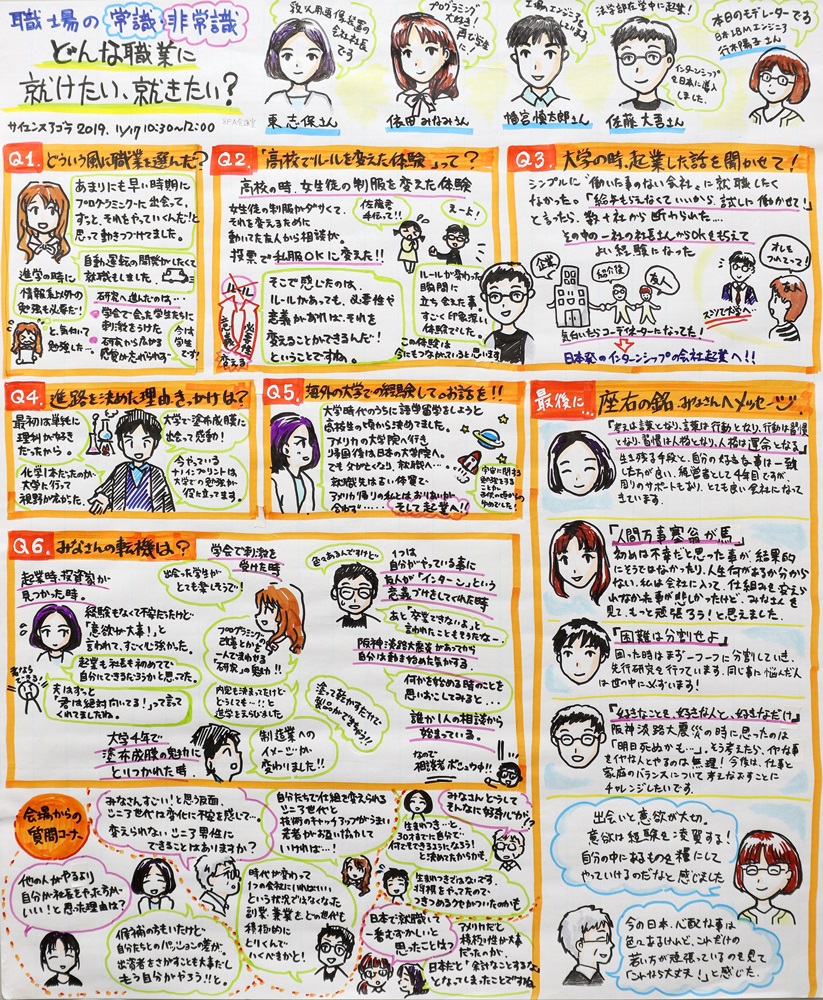 職場の常識・非常識
どんな職業に
就けたい、就きたい?
サイエンスアゴラ2019. 11/17 10:30~12:00
会社社長
です
東 志保さん
プログラミング
大好き!
依田 みなみさん
幡宮 慎太郎さん
法学部在学中に起業!
インターンシップ
を日本に導入
しました.
佐藤 大吾さん
本日のモデレーターです
日本IBMエンジニア
行木陽子さん
Q1. どういう風に職業を選んだ?
あまりにも早い時期に
プログラミングに出会って、
ずっと、それをやっていくんだ!と
思って動きつづけてました。
自動運転の開発がしたくて
就職もしました。
進学の時に
情報系以外の
勉強も必要だ!
と、気付いて
勉強した…
研究へ進んだのは…
学会で会った学生たちに
刺激をうけた
研究から広がる
感覚が忘れられず…
今は
学生
です!
Q2. 「高校でルールを変えた体験」って?
高校の時、女生徒の制服を変えた体験
女生徒の制服がダサくて、
それを変えるために
動いてた友人から相談が。
投票で私服OKに変えた!!
佐藤君
手伝って!!
えーよ!
ルール
意義
必要性
変える
そこで感じたのは、
ルールがあっても、必要性や
意義があれば、それを
変えることができるんだ!
ということですね。
ルールが変わった
瞬間に
立ち会えた事。
すごく印象深い
体験でした。
この体験は
今にもつながっていると思います
Q3. 大学の時、起業した話を聞かせて!
シンプルに"働いた事のない会社"に就職したく
なかった。「給与もらえなくていいから、試しに働かせて!」
と言ったら、数十社から断わられた…
その中の一社の社長さんからOKを貰えて
よい経験になった
企業
紹介後
友人
オレも
つれてって!
友人
スーツで大学へ…
気付いたらコーディネーターになってた!
日本発のインターンシップの会社起業へ!!
Q4. 進路を決めた理由、きっかけは?
最初は単純に
理科が好き
だったから。
化学1本だったのが
大学に行って
視野が広がった。
大学で塗布成膜に
出会って感動!
今やっている
ナノインプリントは
大学での勉強が
役に立ってます。
Q5. 海外の大学での経験して。お話を!!
大学時代のうちに語学留学をしようと
高校生の頃から決めてました。
アメリカの大学院へ行き
帰国後は日本の大学院へ。
でも父が亡くなり、就職へ…
就職先は古い体質で
アメリカ帰りの私とはおりあいが
合わず……そして起業へ!!
宇宙に関する
勉強をする
ことが
Q6. みなさんの転機は?
起業時、投資家が
見つかった時。
経験もなくて不安だったけど
「意欲が大事!」と
言われて、すごく心強かった。
起業も社長も初めてで
自分にできるだろうかと思ってた。
夫はずっと
「君は絶対向いてる!」って言って
くれてましたね。
学会で刺激を
受けた時
出会った学生が
とても楽しそうで!
プログラミングの
改善とかを
一人でまわせる
「研究」の魅力!!
内定も決まってたけど
どうしても…!!と
進学をえらびました
大学4年で
塗布成膜の魅力に
とりつかれた時
塗って乾かすだけで
製造業への
イメージが
変わりました!!
色々あるんですけど
1つは
自分がやっている事に
友人が「インターン」という
意義づけをしてくれた時
あと「卒業できないよ」と
言われたこともそうだな…
阪神淡路大震災があってから
自分は動き始めた気がする。
何かを始める時のことを
思いおこしてみると…
誰か1人の相談から
始まっている。
なので
相談者ボシュウ中!!
最後に… 座右の銘、みなさんへメッセージ
「考えは言葉となり、言葉は行動となり、行動は習慣
となり、習慣は人格となり、人格は運命となる」
生き残る手段と、自分の大好きな事は一致
した方が良い。経営者として4年目ですが、
周りのサポートもあり、とても良い会社になって
きています。
「人間万事塞翁が馬」
初めは不幸だと思った事が、結果的
にそうではなかったり、人生何があるか分から
ない。私は会社に入って、仕組みを変えら
れなかった事が悲しかったけど、みなさんを
見て、もっと頑張ろう!と思えました。
「困難は分割せよ」
困った時はまず一つ一つに分割していき、
先行研究を行っています。同じ事に悩んだ人
は世の中に必ずいます!
「好きなことを、好きな人と、好きなだけ」
阪神淡路大震災の時に思ったのは
「明日死ぬかも…」。そう考えたら、イヤな事
をイヤな人とやるのは無理!今後は、仕事と
家庭のバランスについて考えなおすことに
チャレンジしたいです。
出会いと意欲が大切。
意欲は経験を凌駕する!
自分の中にあるものを糧にして
やっていけるのだなと感じました
今の日本、心配な事は
色々あるけれど、これだけの
若い方が頑張っているのを見て
「これなら大丈夫!」と感じた。
会場からの
質問コーナー
みなさんすごい!と思う反面、
シニア世代は変化に不安を感じて…
変えられないシニア男性に
できることはありますか?
自分たちで仕組を変えられる
シニア世代と
技術のキャッチアップがうまい
若者がお互い協力して
いければ…!
時代が変わって
1つの会社にいればいい
という状況ではなくなった
副業・兼業をどの世代も
積極的に
とりくんで
いくべきかと!
他の人がやるより
自分が社長をやった方が
いい!と思った理由は?
候補の方もいたけど
自分たちとのパッションの差が。
出資者をさがすことも大事だし
もう自分がやろう!!と。
みなさんどうして
そんなに好奇心が?
生まれつき…と、
30才までに自分で
何とでもできるようになろう!
と決めてたからかも。
生まれつきではないです。
将棋をやってたので
つきつめるクセがついたのかも
日本で就職して
一番むずかしいと
思ったことは?
アメリカだと
積極性が大事
だったのが、
日本だと「余計なことするな」
となってしまったことですね